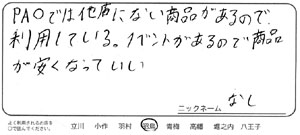 PAOでは他店にない商品があるので
利用している。イベントがあるので商品
が安くなっていい
ニックネーム なし
よく利用されるお店を
○で囲んでください。 立川 小作 羽村 福島 青梅 高幡 堀之内 八王子